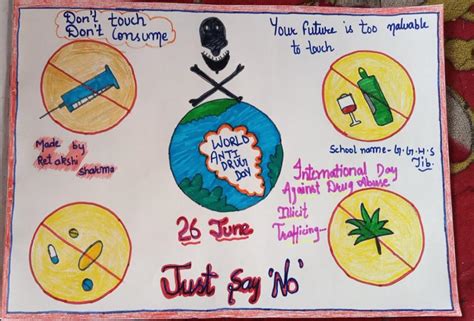 Don't touch
Don't Consume
Your Future is too naluable
to touch
WORLD
ANTI
DRUG
DAY
Made by
Retakshi
sharma
School name- G.G.H.S
Jib.
International Day
Against Drug Abuse
Illicit
Trafficing-
26 June
Just Say 'No'